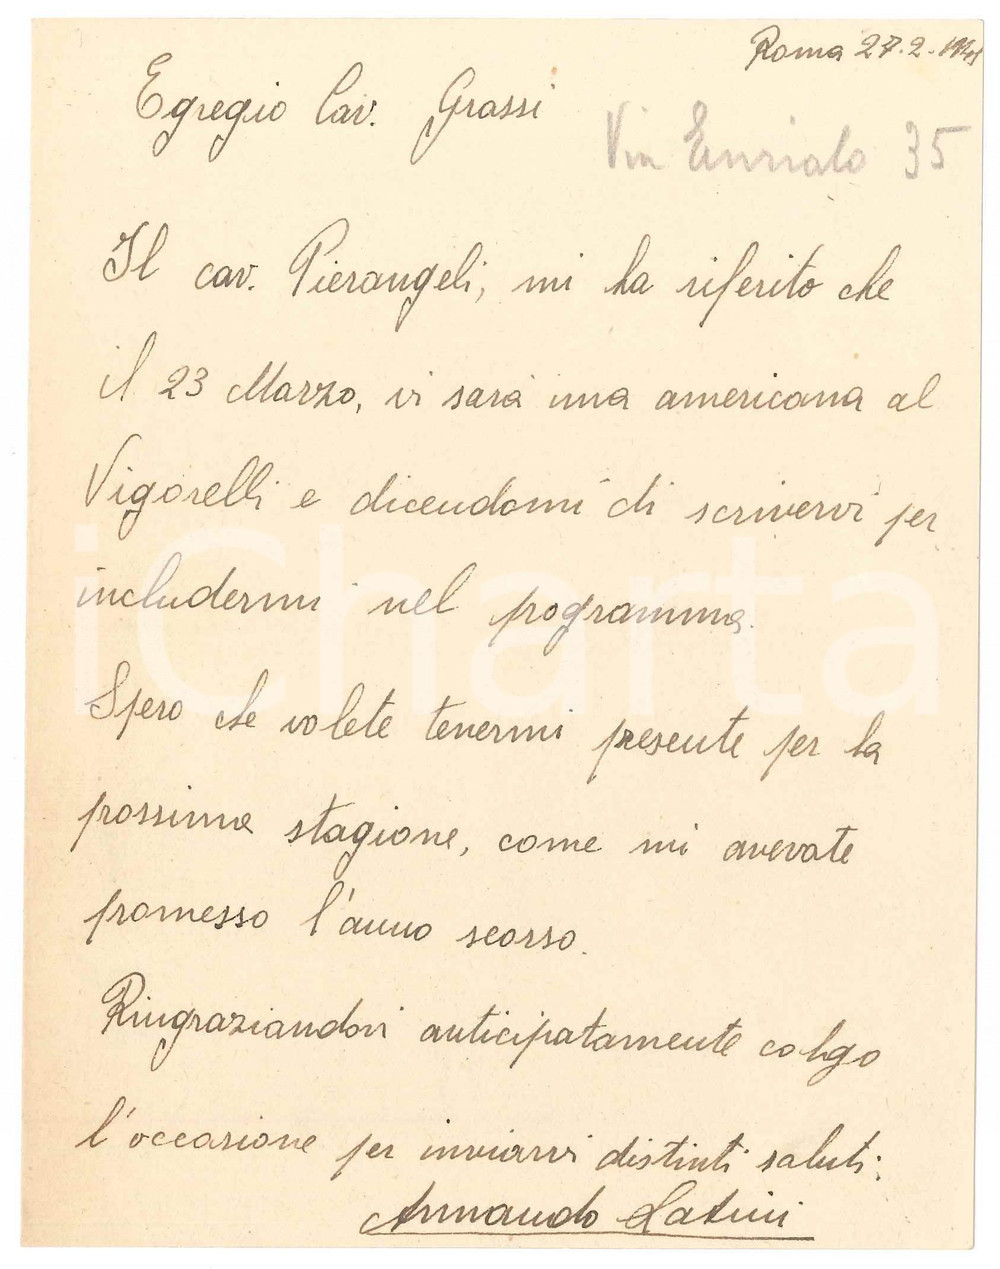 Roma 27.2.1941
Egregio Cav. Grassi
Via Eurialo 35
Il cav. Pierangeli, mi ha riferito che
il 23 Marzo, vi sarà una americana al
Vigorelli e dicendomi di scrivervi per
includermi nel programma.
Spero che volete tenermi presente per la
prossima stagione, come mi avevate
promesso l'anno scorso.
Ringraziandovi anticipatamente colgo
l'occasione per inviarvi distinti saluti.
Armando Latini
iCharta